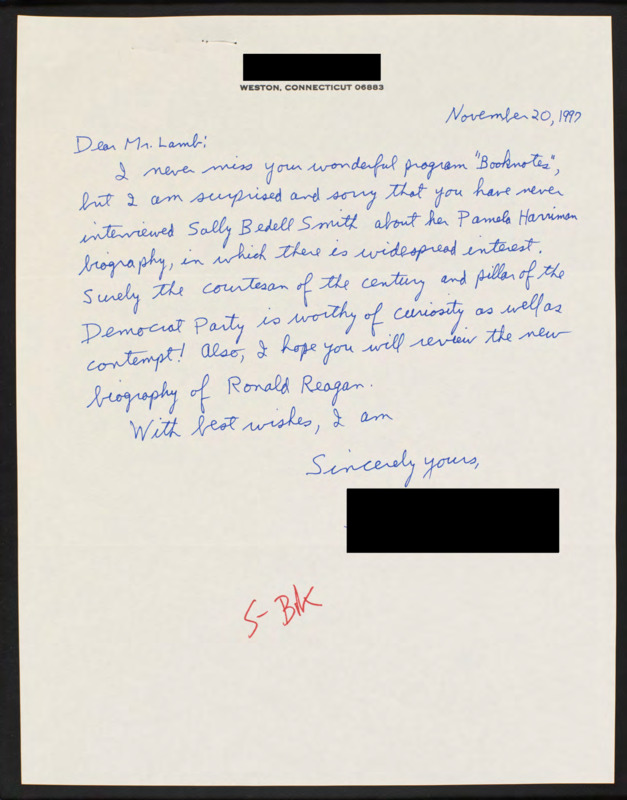 WESTON, CONNECTICUT 06883
November 20, 1997
Dear Mr. Lamb:
I never miss your wonderful program "Booknotes",
but I am surprised and sorry that you have never
interviewed Sally Bedell Smith about her Pamela Harriman
biography, in which there is widespread interest.
Surely the courtesan of the century and pillar of the
Democrat Party is worthy of curiosity as well as
contempt! Also, I hope you will review the new
biography of Ronald Reagan.
With best wishes, I am
Sincerely yours,
5- Bk